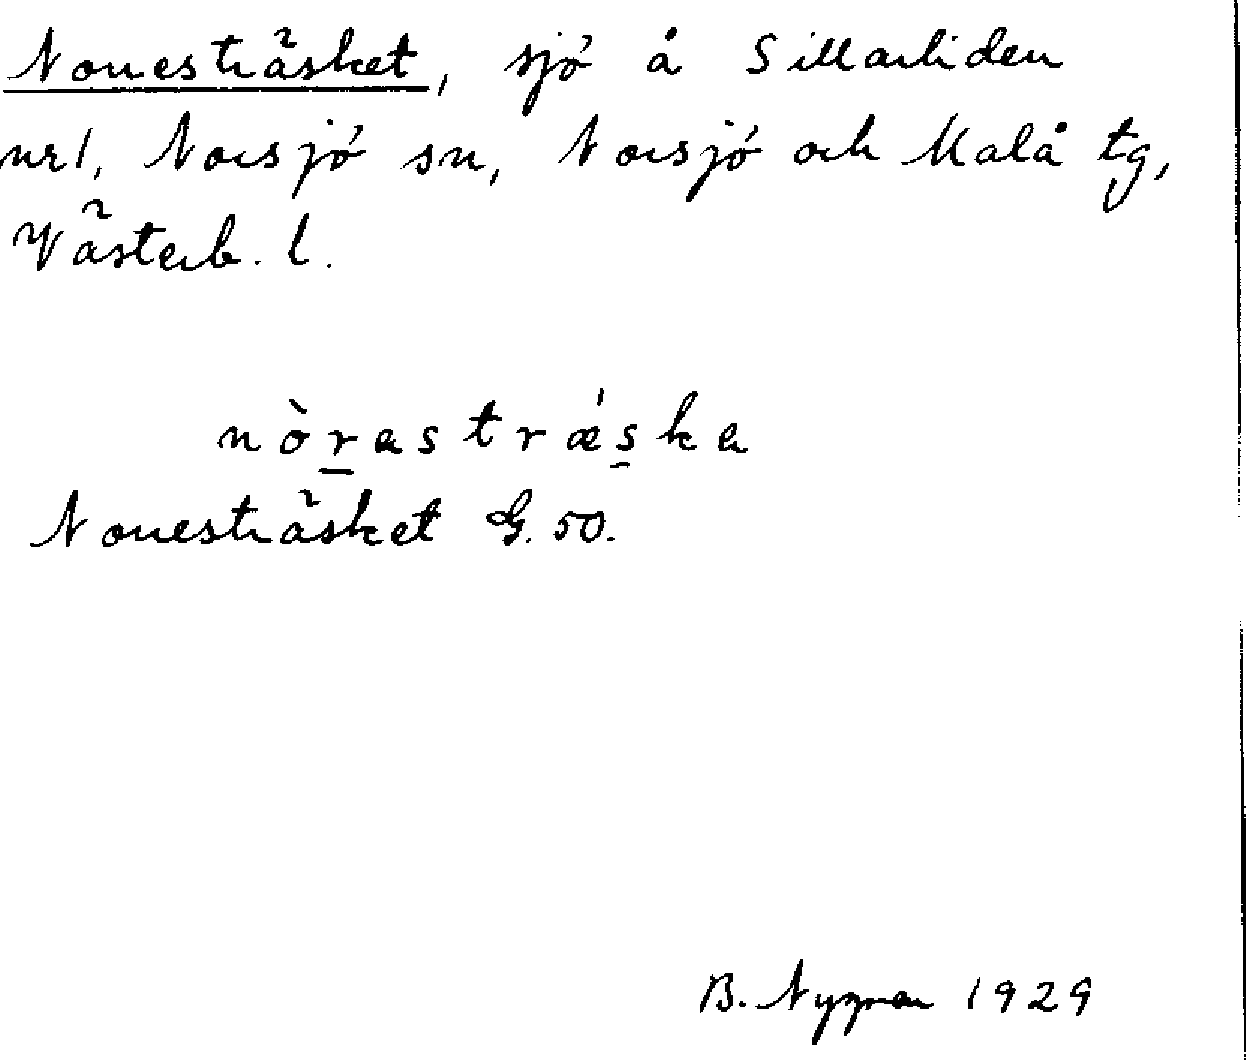 Norresträsket, sjö å Sillarliden
nr 1, Norsjö sn, Norsjö och Malå tg,
Västerb. l.
nòrastrǽska
Norresträsket G. 50.
B. Nygren 1929